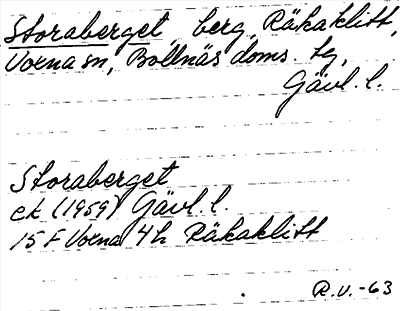 Storaberget, berg, Räkaklitt,
Voxna sn, Bollnäs doms. tg,
Gävl. l.
Storaberget
ek (1959) Gävl. l.
15 F Voxna 4h Räkaklitt
R.V. -63